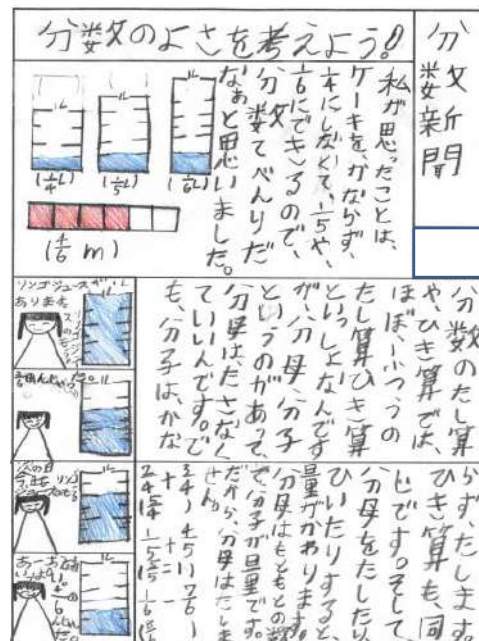 分数新聞
分数のよさを考えよう!
私が思ったことは、
ケーキを、かならず、
1/4にしなくて、1/5や、
1/6にできるので、
分数てべんりだ
なぁと思いました。
1L
(1/4L)
1L
(1/5L)
1L
(1/6L)
(4/6 m)
分数のたし算
や、ひき算では、
ほぼ、ふつうの
たし算ひき算
といっしょなんです
が、分母、分子
というのがあって、
分母は、たさなく
ていいんです。で
も、分子は、かな
らず、たします。
ひき算も、同
じです。そして
分母をたしたり
ひいたりすると、
量がかわります。
分母はもともとの数
で、分子が量です。
だから、分母はたしま
せん。
リンゴジュースが1L
あります
1L
1L
1L
1L